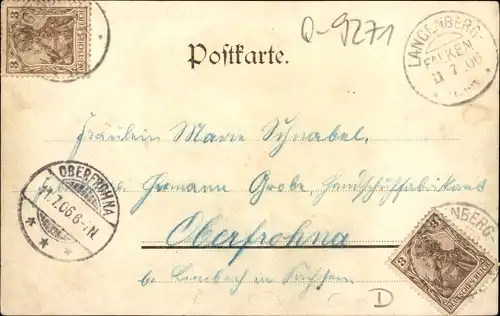 3
DEUTSCHES REICH
Q-9271
Postkarte.
LANGENBERG
FALKEN
11 7. 06
Fräulein Marie Schnabel,
Hermann Grobe, Handschuhfabrikant
OBERFROHNA
11.7.06 6-7N.
Oberfrohna
b. Limbach in Sachsen.
NBERG
3
DEUTSCHES REICH
D